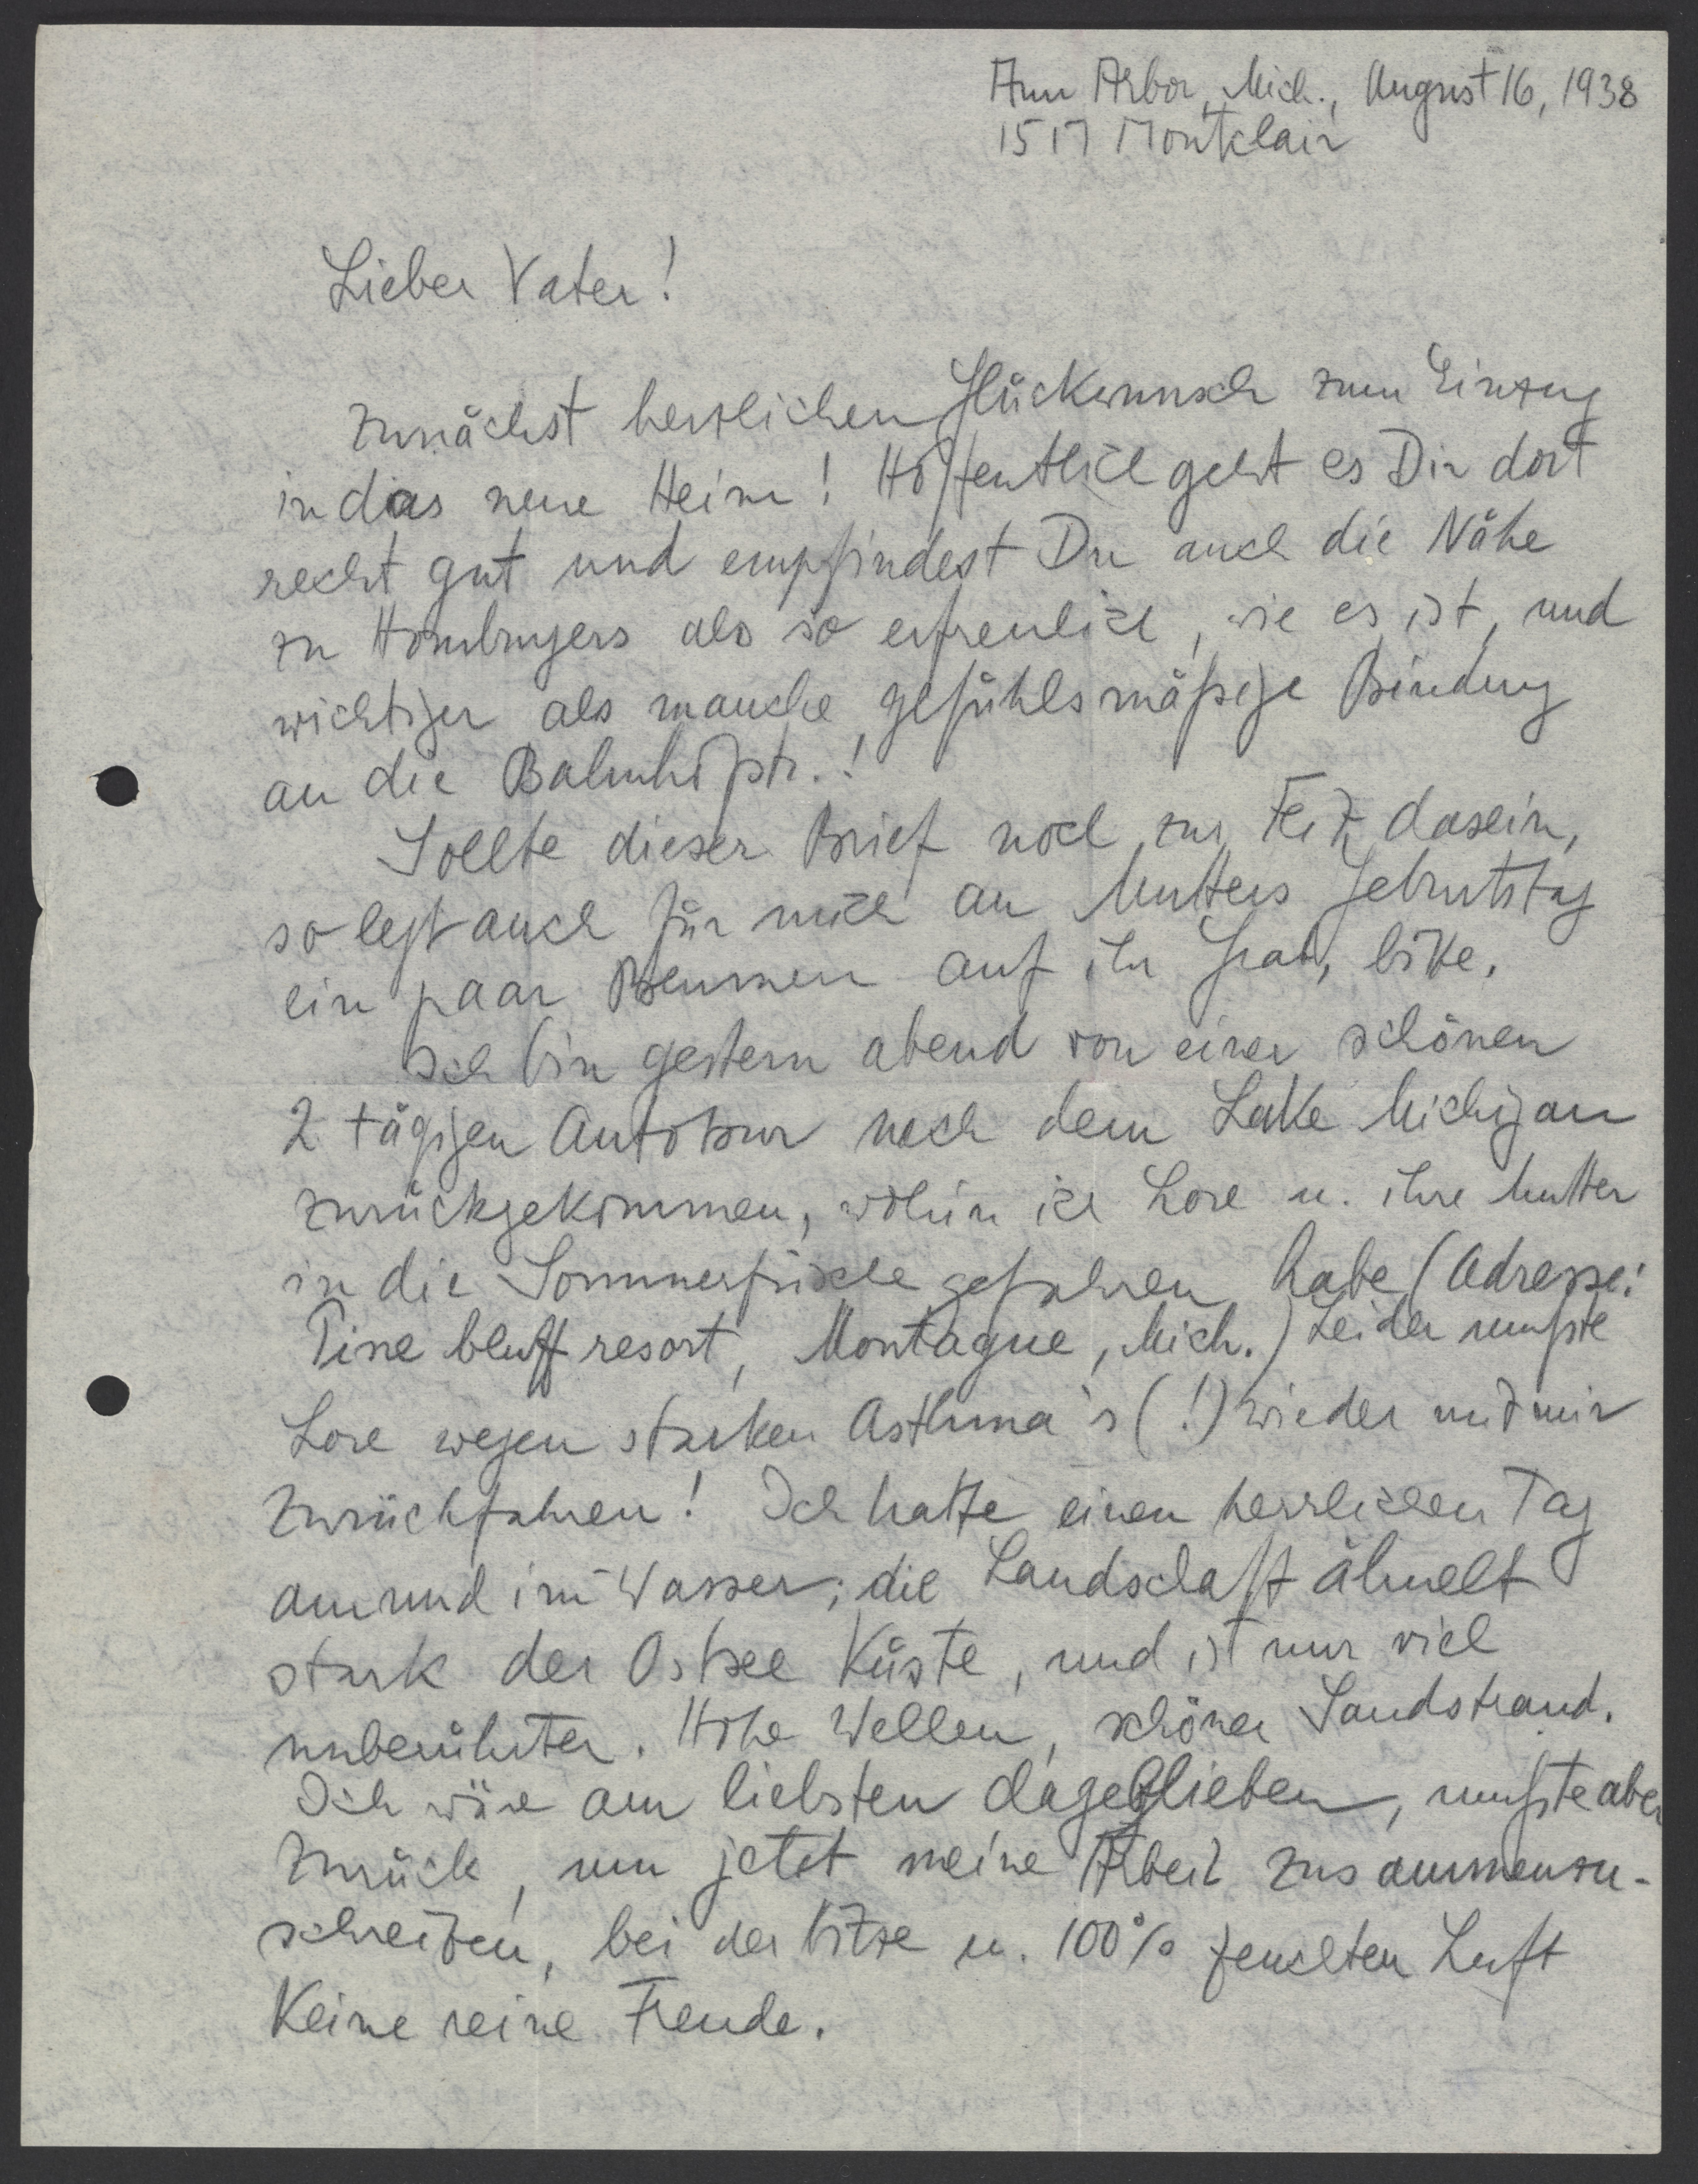 Ann Arbor, Mich., August 16, 1938
1517 Montclair
Lieber Vater!
Zunächst herzlichen Glückwunsch zum Einzug
in das neue Heim! Hoffentlich geht es Dir dort
recht gut und empfindest Du auch die Nähe
zu Homburgers als so erfreulich, wie es ist, und
wichtiger als manche gefühlsmäßige Bindung
an die Bahnhofstr.!
Sollte dieser Brief noch zur Zeit dasein,
so legt auch für mich an Mutters Geburtstag
ein paar Blumen auf ihr Grab, bitte.
Ich bin gestern abend von einer schönen
2 tägigen Autotour nach dem Lake Michigan
zurückgekommen, wohin ich Lore u. ihre Mutter
in die Sommerfrische gefahren habe (Adresse:
Pine bluff resort, Montague, Mich.) Leider mußte
Lore wegen starken Asthma's (!) wieder mit mir
zurückfahren! Ich hatte einen herrlichen Tag
am und im Wasser; die Landschaft ähnelt
stark der Ostsee Küste, und ist nur viel
unberührter. Hohe Wellen, schöner Sandstrand.
Ich wäre am liebsten dageblieben, mußte aber
zurück, um jetzt meine Arbeit zusammenzu-
schreiben, bei der Hitze u. 100% feuchten Luft
keine reine Freude.